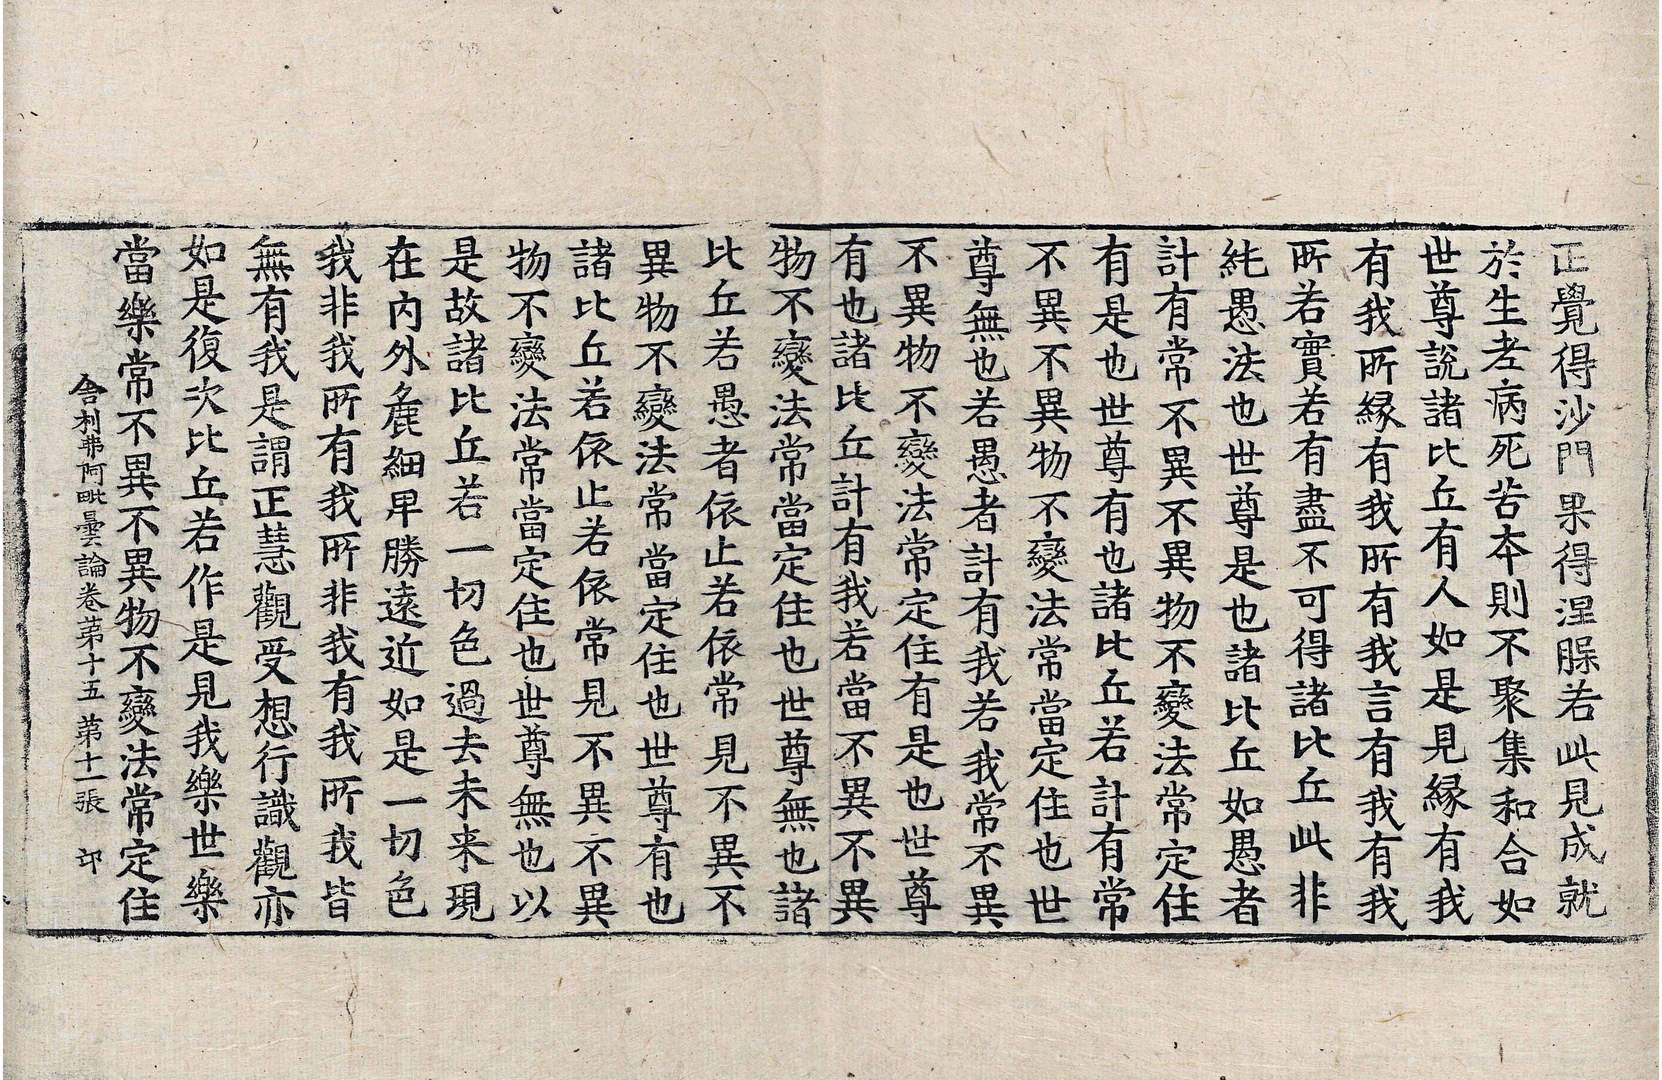 正覺得沙門果得湼若此見成就
於生老病死苦本則不聚集和合如
世尊說諸比丘有人如是見縁有我
有我所縁有我所有我言有我有我
所若實若有盡不可得諸比丘此非
純愚法也世尊是也諸比丘如愚者
計有常不異不異物不變法常定住
有是也世尊有也諸比丘若計有常
不異不異物不變法常當定住也世
尊無也若愚者計有我若我常不異
不異物不變法常定住有是也世尊
有也諸比丘計有我若當不異不異
物不變法常當定住也世尊無也諸
比丘若愚者依止若依常見不異不
異物不變法常當定住也世尊有也
諸比丘若依止若依常見不異不異
物不變法常當定住也世尊無也以
是故諸比丘若一切色過去未来現
在内外麁細卑勝遠近如是一切色
我非我所有我所非我有我所我皆
無有我是謂正慧觀受想行識觀亦
如是復次比丘若作是見我樂世樂
當樂常不異不異物不變法常定住
舍利弗阿毗曇論卷第十五 第十一張